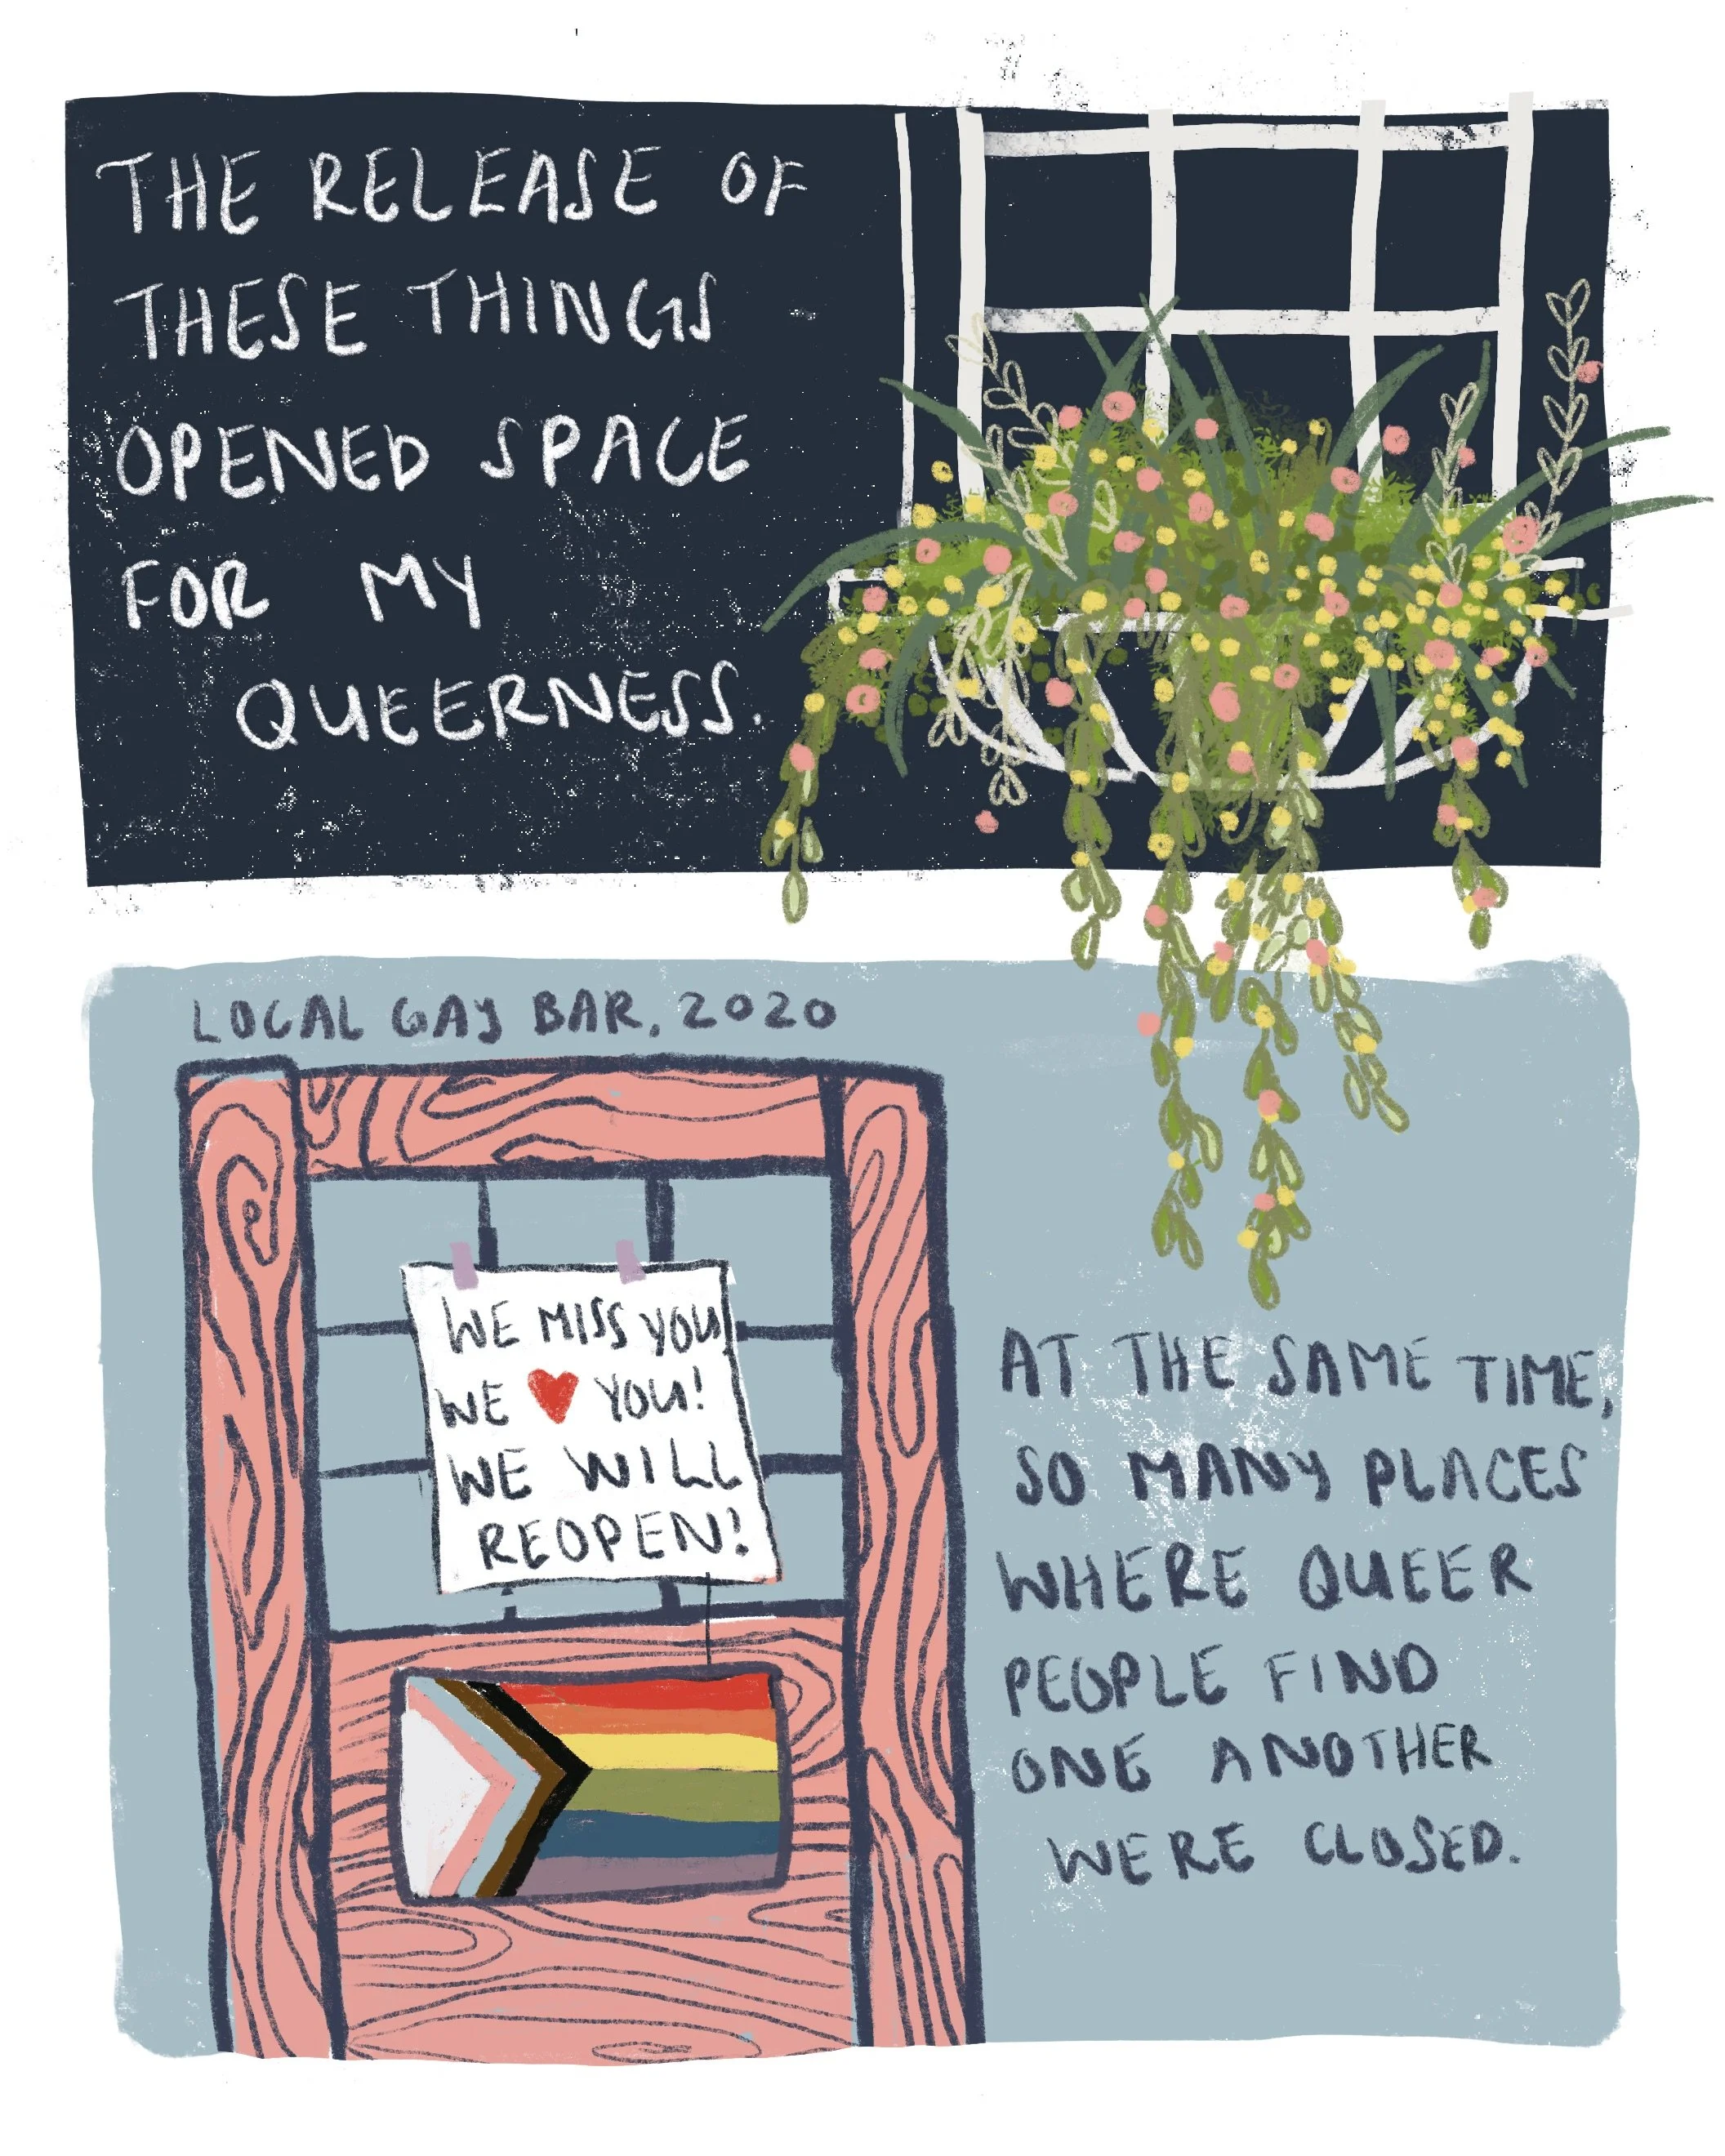 THE RELEASE OF
THESE THINGS
OPENED SPACE
FOR MY
QUEERNESS.
LOCAL GAY BAR, 2020
WE MISS YOU
WE ❤ YOU!
WE WILL
REOPEN!
AT THE SAME TIME,
SO MANY PLACES
WHERE QUEER
PEOPLE FIND
ONE ANOTHER
WERE CLOSED.